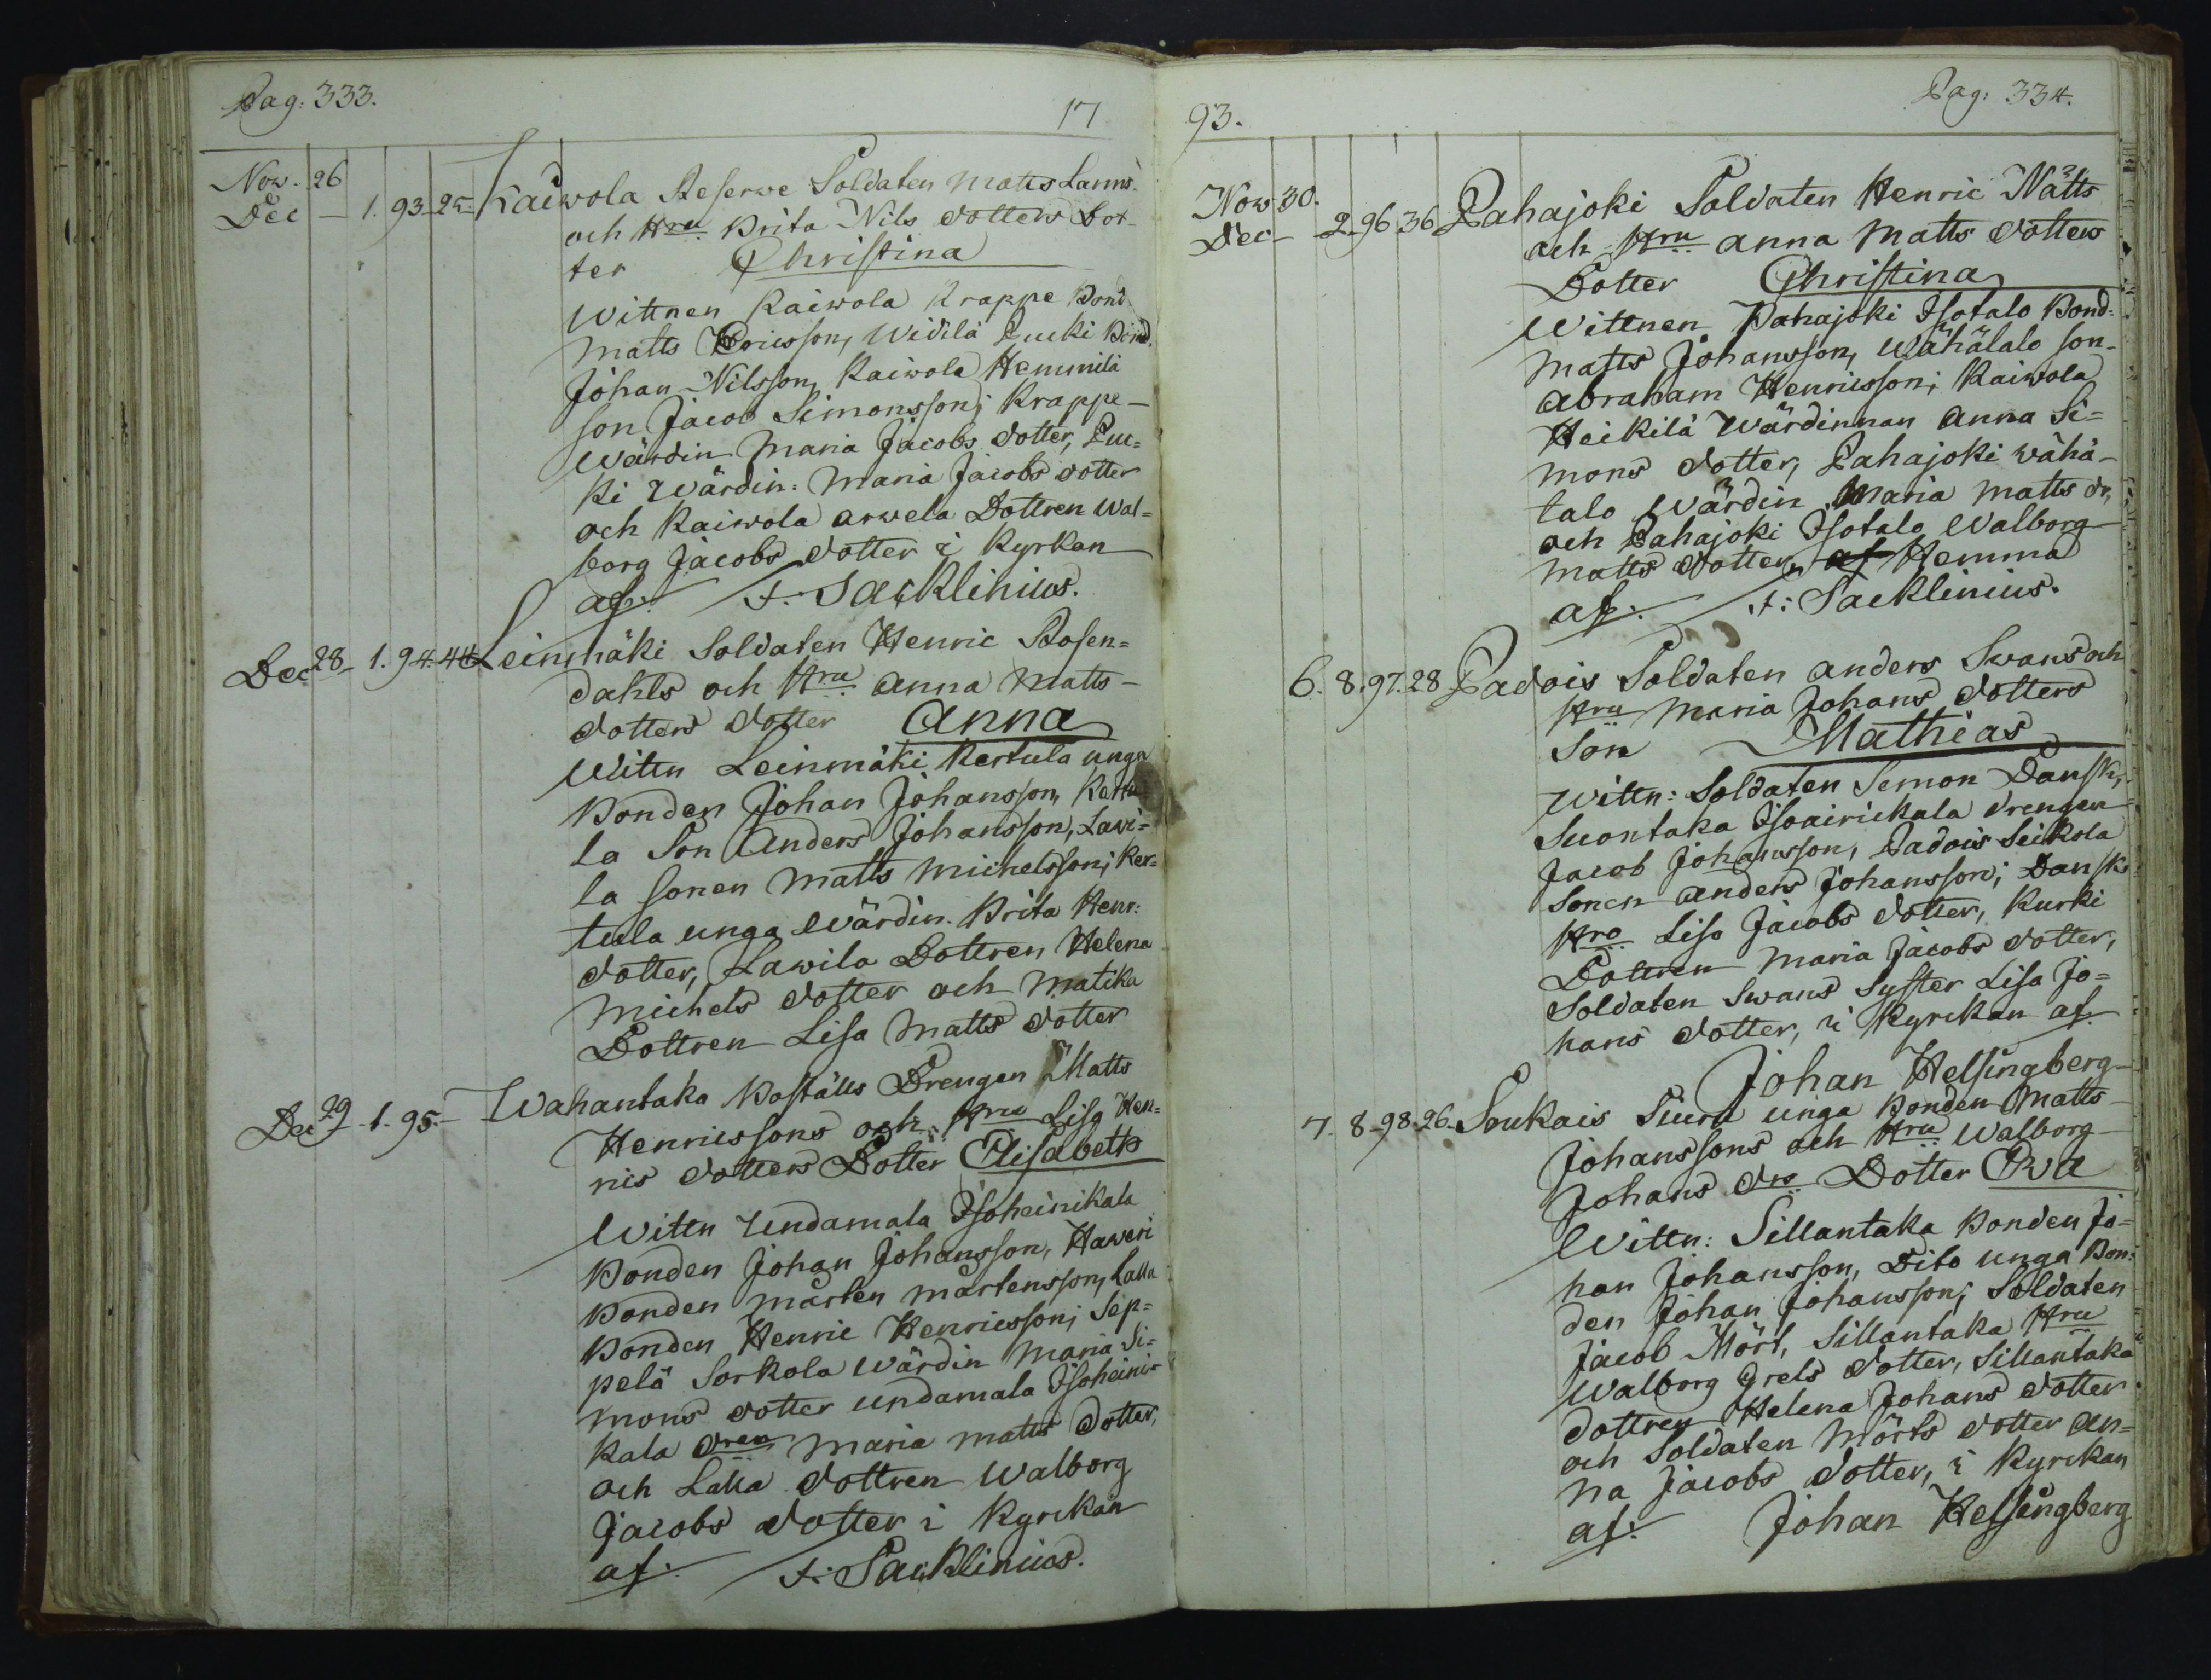 Pag: 333.
17
Nov. 26
Dec — 1. 93. 25. Kaiwola Reserwe Soldaten Matts Lanns
och Hru Brita Nils dotters Dot-
ter Christina
Wittnen Kaiwola Krappe Bond.
Matts Ericsson, Widilä Pucki Bond.
Johan Nilsson, Kaiwola Hemmilä
son Jacob Simonsson; Krappe
Wärdin Maria Jacobs dotter, Puc=
ki Wärdin: Maria Jacobs dotter
och Kaiwola arwela Dottren Wal=
borg Jacobs dotter i Kyrkan
af: F: Sacklinius.
Dec 28 - 1. 94. 44 Leinmäki Soldaten Henric Rosen=
dahls och Hru Anna Matts-
dotters dotter Anna
Wittn Leinmäki Kertula unga
Bonden Johan Johansson, Kertu
la Son Anders Johansson, Lawi=
la sonen Matts Michelsson; Ker=
tula unga Wärdin. Brita Henr:
dotter, Lawila Dottren Helena
Michels dotter och Matika
Dottren Lisa Matts dotter
Dec 29 - 1. 95. - Wahantaka Boställs Drengen Matts
Henricssons och Hru Lisa Hen=
rics dotters Dotter Elisabeth
Wittn Undamala Isoheinikala
Bonden Johan Johansson, Haweri
Bonden Mårten Mårtensson, Lalla
Bonden Henric Henricsson; Sep=
pelä Sorkola Wärdin Maria Si=
mons dotter Undamala Isoheini-
kala Dren Maria Matts Dotter,
och Lalla dottren Walborg
Jacobs dotter i Kyrckan
af: F: Sacklinius.
93.
Pag: 334.
Nov 30.
Dec — 2. 96. 36 Pahajoki Soldaten Henric Nätts
och Hru Anna Matts dotters
Dotter Christina
Wittnen Pahajoki Isotalo Bond=
Matts Johansson, Wähätalo son
Abraham Henricsson; Kaiwola
Heikilä Wärdinnan Anna Si=
mons dotter, Pahajoki Wähä-
talo Wärdin Maria Matts dr,
och Pahajoki Isotalo Walborg
Matts dotter, af Hemma
af: F: Sacklinius.
6. 8. 97. 28 Padois Soldaten Anders Swans och
Hru Maria Johans dotters
Son Mathias
Wittn: Soldaten Semon Dansk,
Suontaka Isoairickala drengen
Jacob Johansson, Padois Seikola
Sonen Anders Johansson; Dansks
Hro Lisa Jacobs dotter, Kurki
Dottren Maria Jacobs dotter,
Soldaten Swans Syster Lisa Jo=
hans dotter, i Kyrckan af.
Johan Helsingberg
7. 8. 98. 26. Soukais Siuru unga Bonden Matts
Johanssons och Hru Walborg
Johans Drs Dotter Eva
Wittn: Sillantaka Bonden Jo=
han Johansson, Dito unga Bon=
den Johan Johansson; Soldaten
Jacob Mört, Sillantaka Hru
Walborg Grels dotter, Sillantaka
dottren Helena Johans dotter
och Soldaten Mörts dotter An=
na Jacobs dotter, i Kyrckan
af: Johan Helsingberg